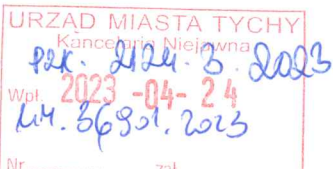 URZĄD MIASTA TYCHY
Kancelaria Niejawna
PZK. 2124.3.2023
Wpł. 2023 -04- 24
36901.2023
Nr zał.